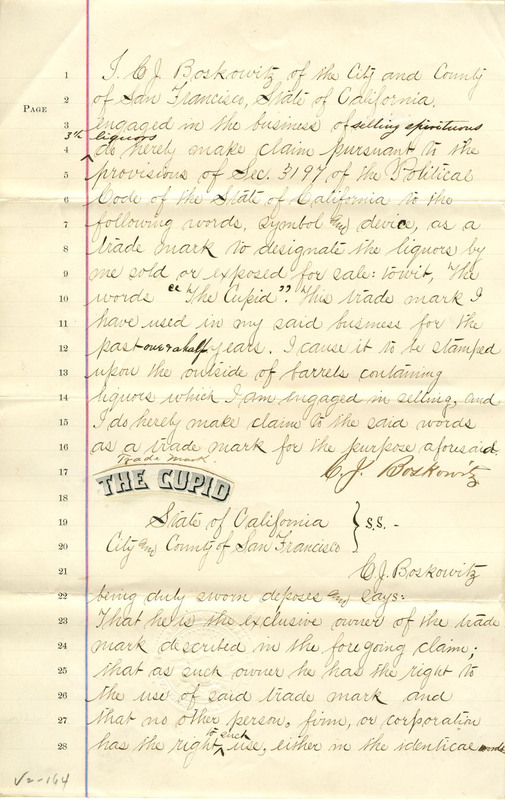 1 I. C. J. Boskowitz, of the City and County
PAGE
2 of San Francisco, State of California,
3 engaged in the business of selling spirituous
liquors
4 do herely make claim pursuant to the
5 provisions of Sec. 3197 of the Political
6 Code of the State of California to the
7 following words, symbol and device, as a
8 trade mark to designate the liquors by
9 me sold or exposed for sale: towit, The
10 words "The Cupid". This trade mark I
11 have used in my said business for the
12 past one & a half years. I cause it to be stamped
13 upon the outside of barrels containing
14 liquors which I am engaged in selling, and
15 I do herely make claim to the said words
16 as a trade mark for the purpose aforesaid.
Trade Mark.
17 C. J. Boskowitz
THE CUPID
18
19 State of California } S.S. -
20 City and County of San Francisco
21 C. J. Boskowitz
22 being duly sworn deposes and says:
23 That he is the exclusive owner of the trade
24 mark described in the foregoing claim;
25 that as such owner he has the right to
26 the use of said trade mark and
27 that no other person, firm, or corporation
to such
28 has the right ^ use, either in the identical words
V2-164